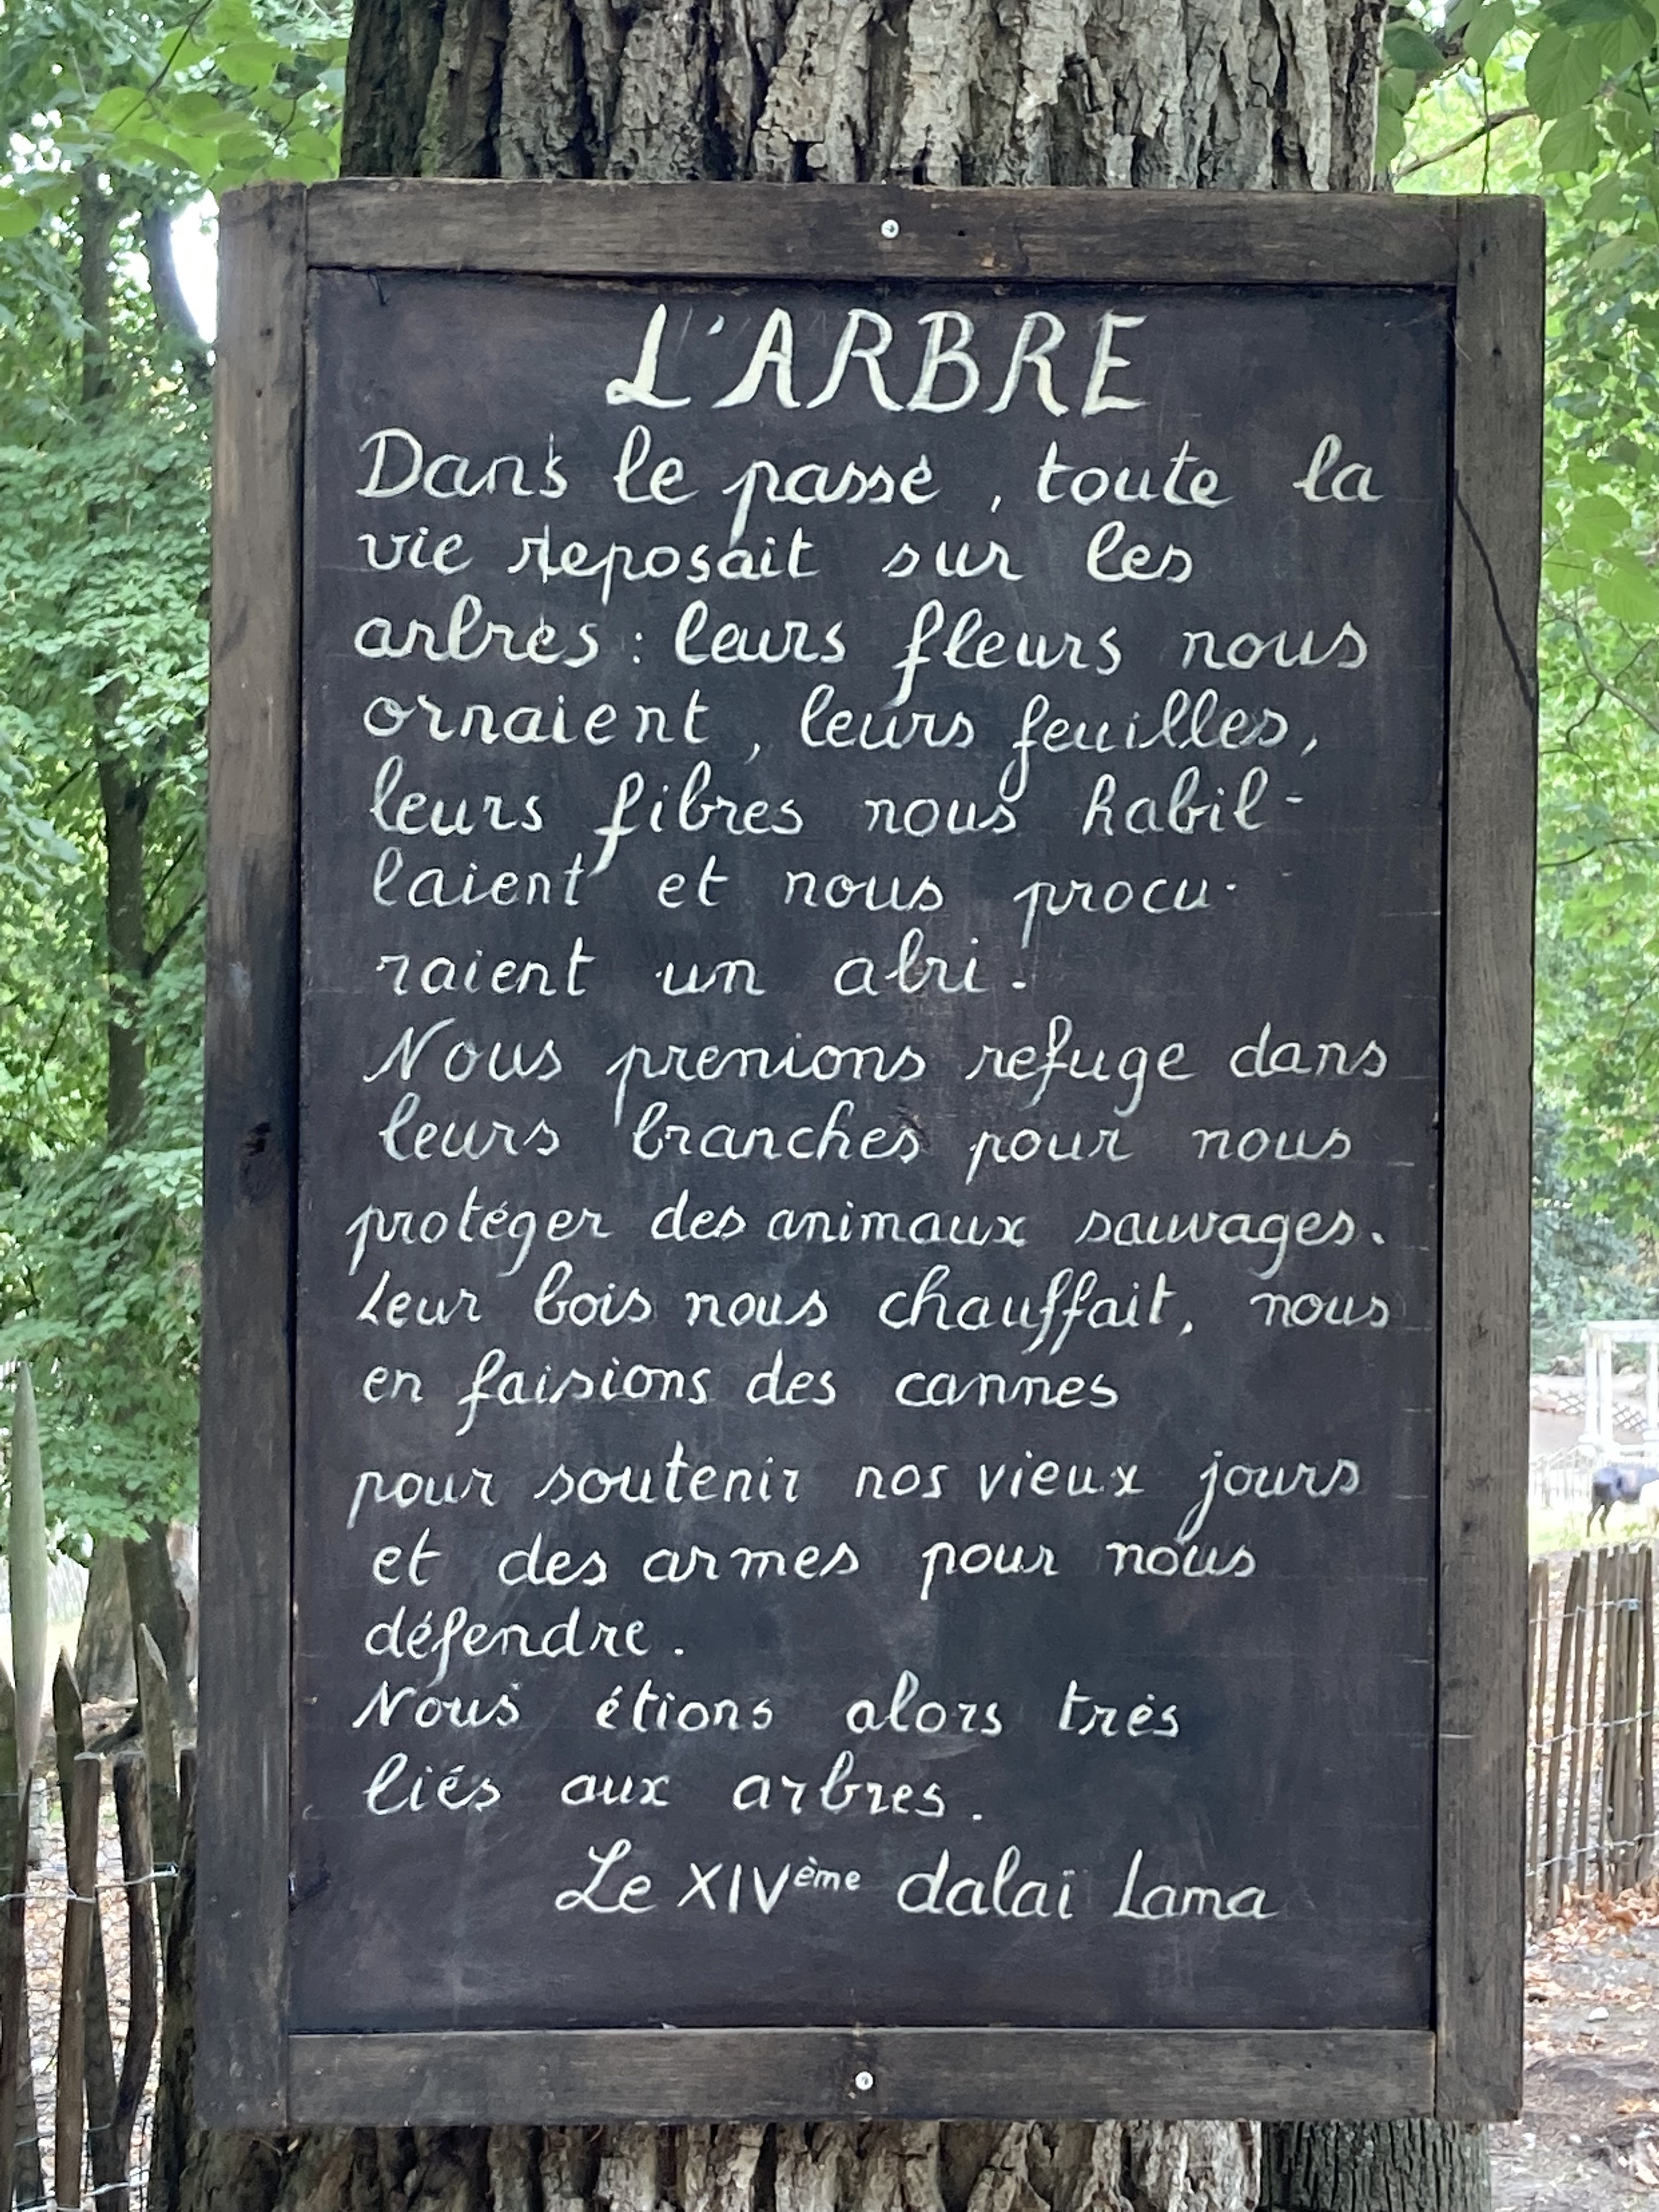 L'ARBRE
Dans le passé, toute la
vie reposait sur les
arbres : leurs fleurs nous
ornaient, leurs feuilles,
leurs fibres nous habil-
laient et nous procu-
raient un abri.
Nous prenions refuge dans
leurs branches pour nous
protéger des animaux sauvages.
Leur bois nous chauffait, nous
en faisions des cannes
pour soutenir nos vieux jours
et des armes pour nous
défendre.
Nous étions alors très
liés aux arbres.
Le XIVème dalaï Lama